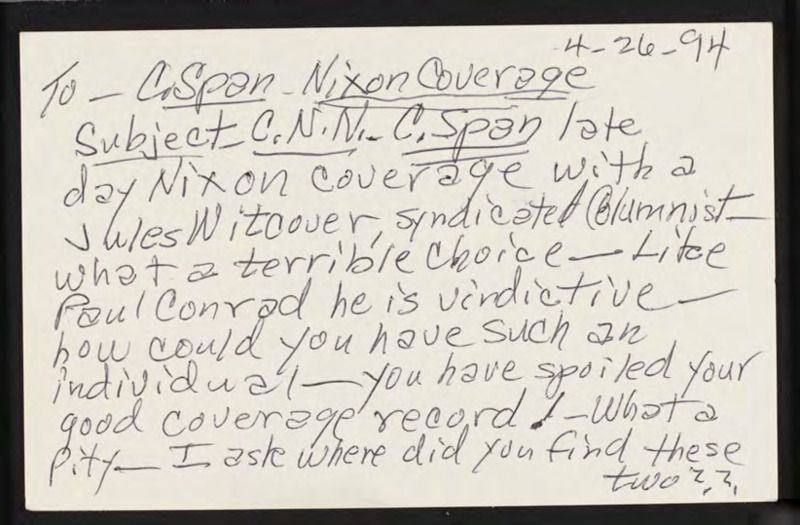 4-26-94
To - C.Span - Nixon Coverage
Subject - C.N.N. - C.Span late
day Nixon coverage with a
Jules Witcover, syndicated Columnist -
what a terrible choice — Like
Paul Conrad he is vindictive —
how could you have such an
individual — you have spoiled your
good coverage record ! - What a
pity — I ask where did you find these
two ? ?